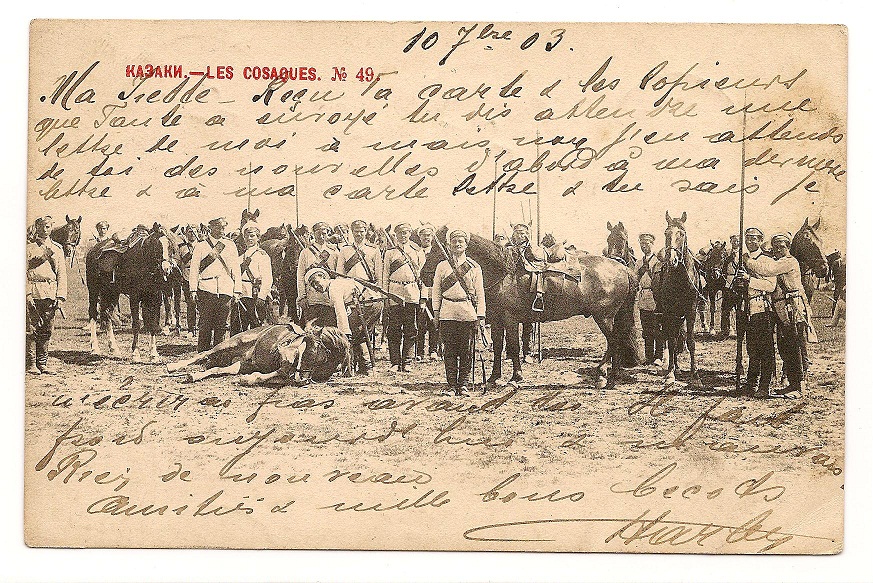 10 7bre 03.
КАЗАКИ.—LES COSAQUES. № 49.
Ma Reçu ta carte & les
que Tante a envoyé tu dis attendre une
lettre de moi à mais moi j'en attends
de toi des nouvelles d'abord à ma dernière
lettre & à ma carte lettre & tu sais je
m'écriras pas avant Il fait
froid aujourd'hui & mauvais
Rien de nouveau
Amitiés & mille bons becots
Harley